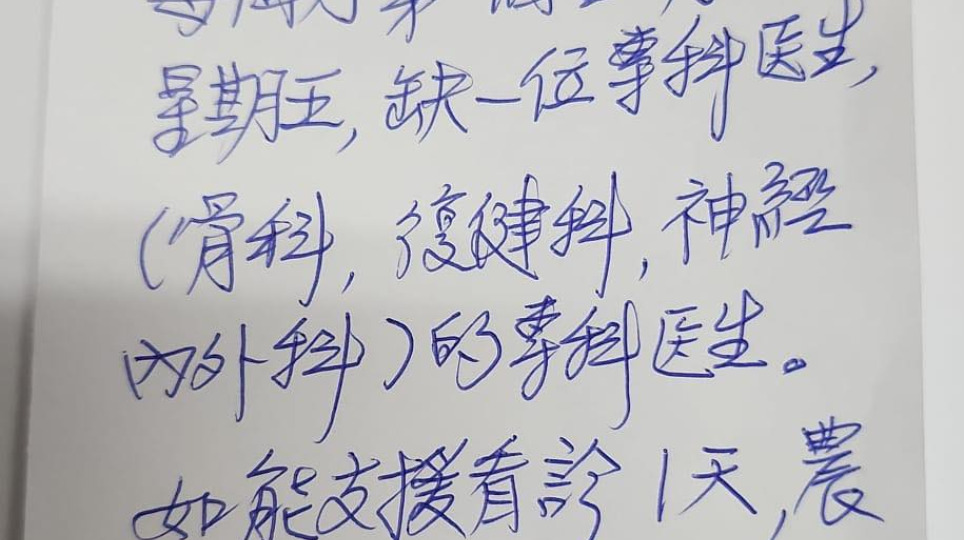 星期五, 缺一位專科医生,
(骨科, 復健科, 神經
內外科) 的專科医生。
如能支援看診1天, 農